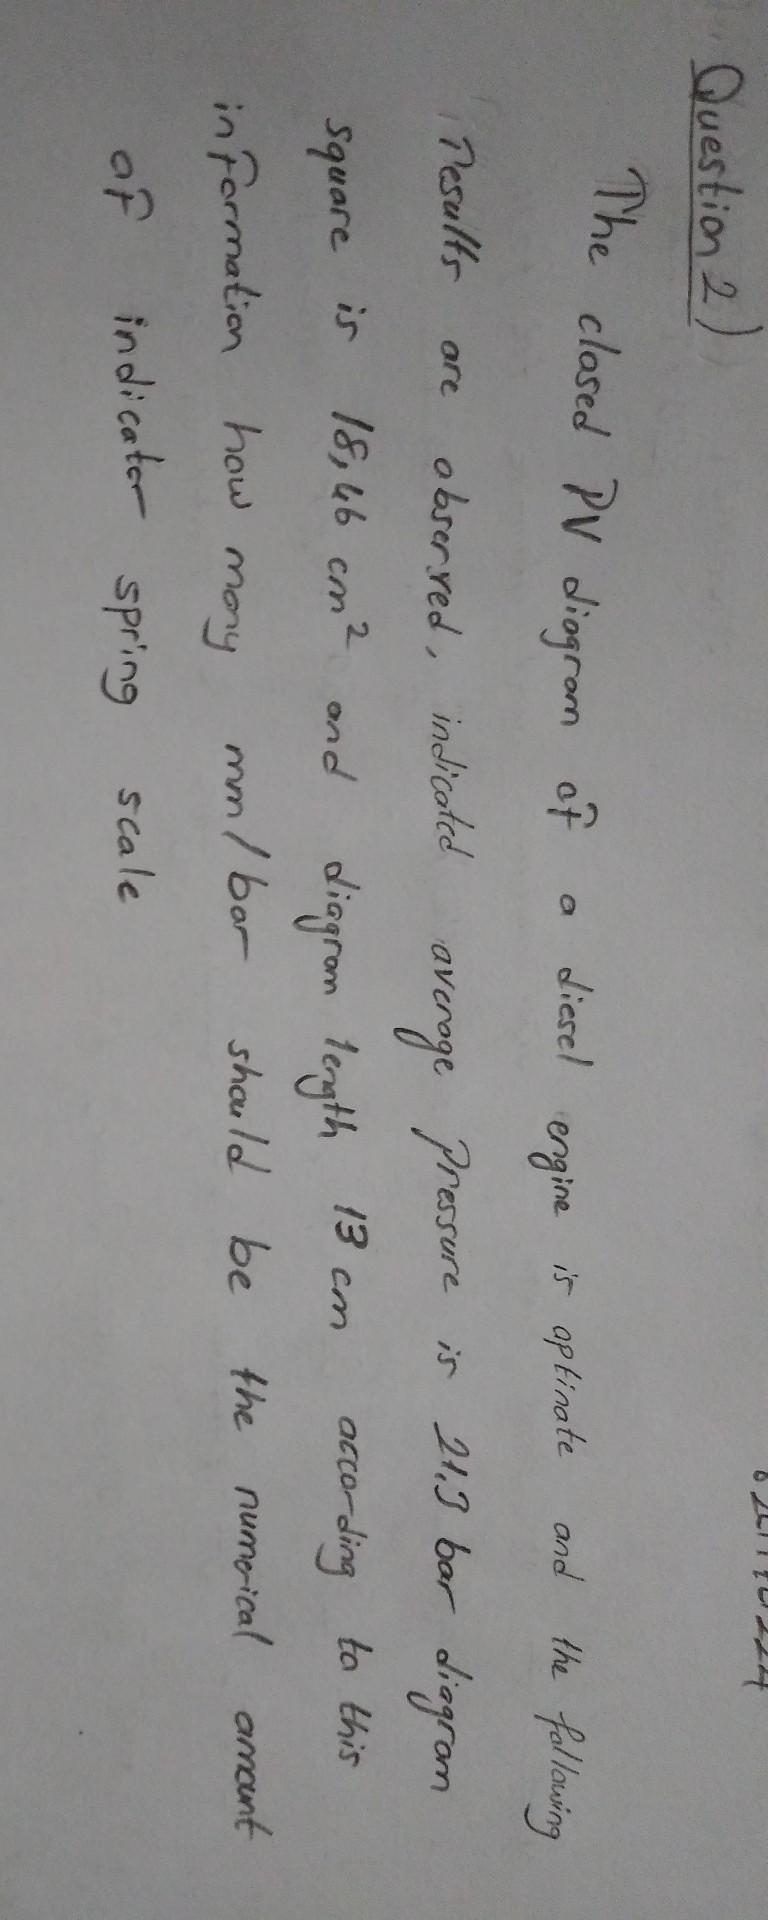 Question 2)
The closed PV diagram of a diesel engine is optinate and the following
results are observed, indicated average pressure is 21.3 bar diagram
square is 18,46 cm² and diagram length 13 cm according to this
information how many mm/bar should be the numerical amount
of indicator spring scale